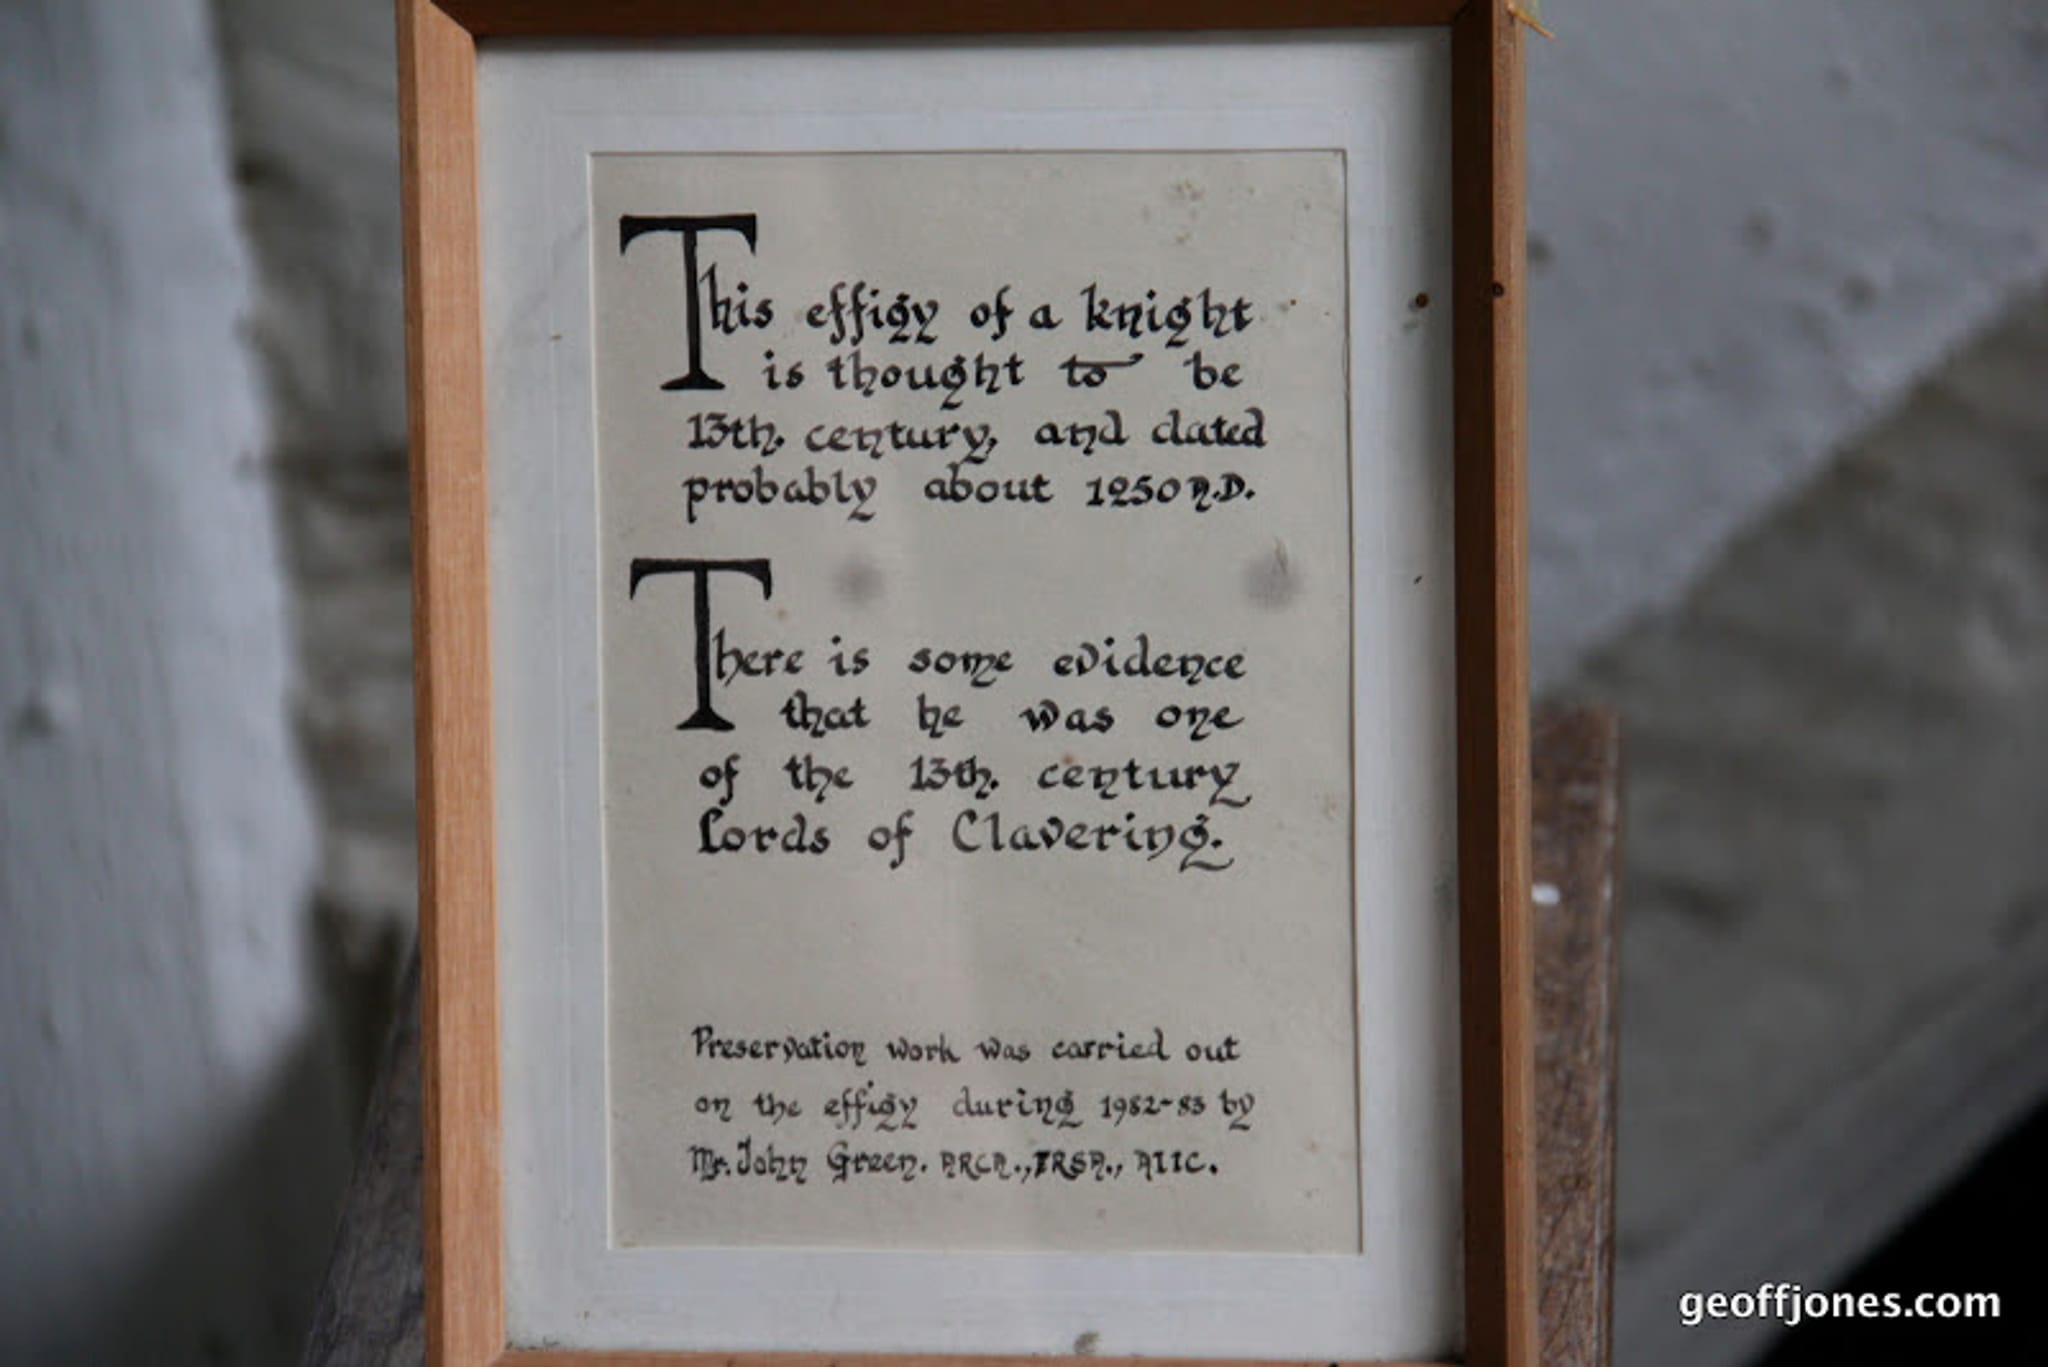 This effigy of a knight
is thought to be
13th. century, and dated
probably about 1250 A.D.
There is some evidence
that he was one
of the 13th. century
Lords of Clavering.
Preservation work was carried out
on the effigy during 1982-83 by
Mr. John Green. ARCA., FRSA., AIIC.
geoffjones.com